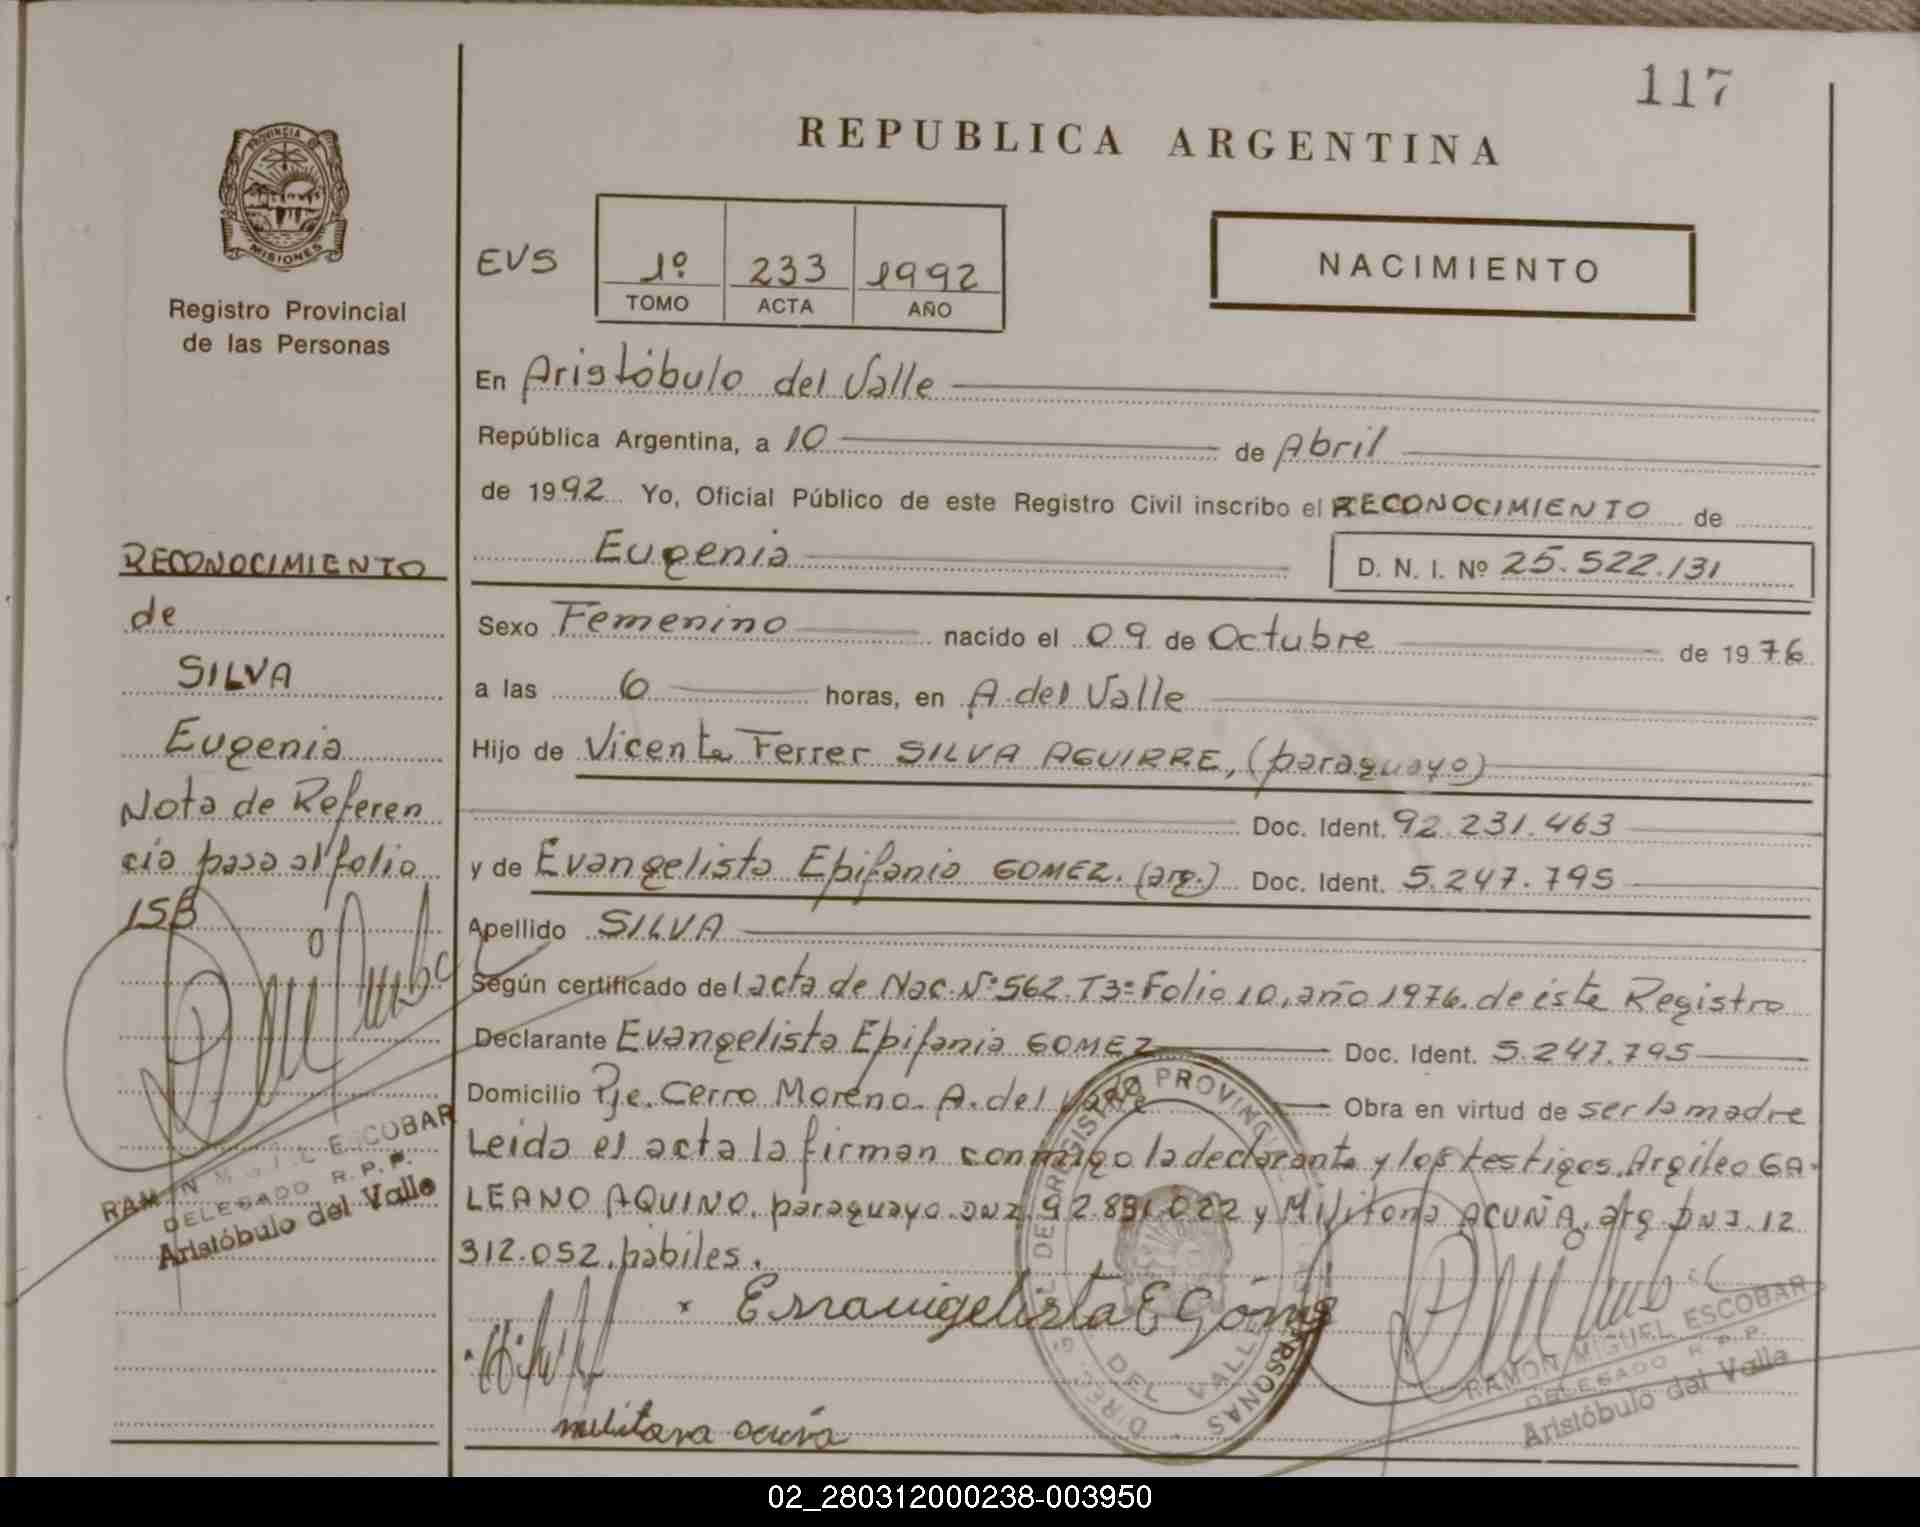 117
REPUBLICA ARGENTINA
PROVINCIA DE
MISIONES
Registro Provincial
de las Personas
EVS
1º 233 1992
TOMO ACTA AÑO
NACIMIENTO
En Aristóbulo del Valle
República Argentina, a 10 de Abril
de 1992 Yo, Oficial Público de este Registro Civil inscribo el RECONOCIMIENTO de
Eugenia D. N. I. Nº 25.522.131
Sexo Femenino nacido el 09 de Octubre de 1976
a las 6 horas, en A. del Valle
Hijo de Vicente Ferrer SILVA AGUIRRE, (paraguayo)
Doc. Ident. 92.231.463
y de Evangelista Epifania GOMEZ. (arg.) Doc. Ident. 5.247.795
Apellido SILVA
Según certificado del acta de Nac. Nº 562. T3º Folio 10, año 1976. de éste Registro
Declarante Evangelista Epifania GOMEZ Doc. Ident. 5.247.795
Domicilio Pje. Cerro Moreno. A. del Valle Obra en virtud de ser la madre
Leida el acta la firman conmigo la declarante y los testigos, Argileo GA-
LEANO AQUINO, paraguayo. DNI. 92.891.022 y Militona ACUÑA, arg. DNI. 12
312.052, hábiles.
x Esravigelista E Góme
militana acuña
RECONOCIMIENTO
de
SILVA
Eugenia
Nota de Referen
cia pasa al folio
158
RAMON MIGUEL ESCOBAR
DELEGADO R.P.P.
Aristóbulo del Valle
DIREC. G. DEL REGISTRO PROVINCIAL PERSONAS
DEL VALLE
RAMON MIGUEL ESCOBAR
DELEGADO R.P.P.
Aristóbulo del Valle
02_280312000238-003950